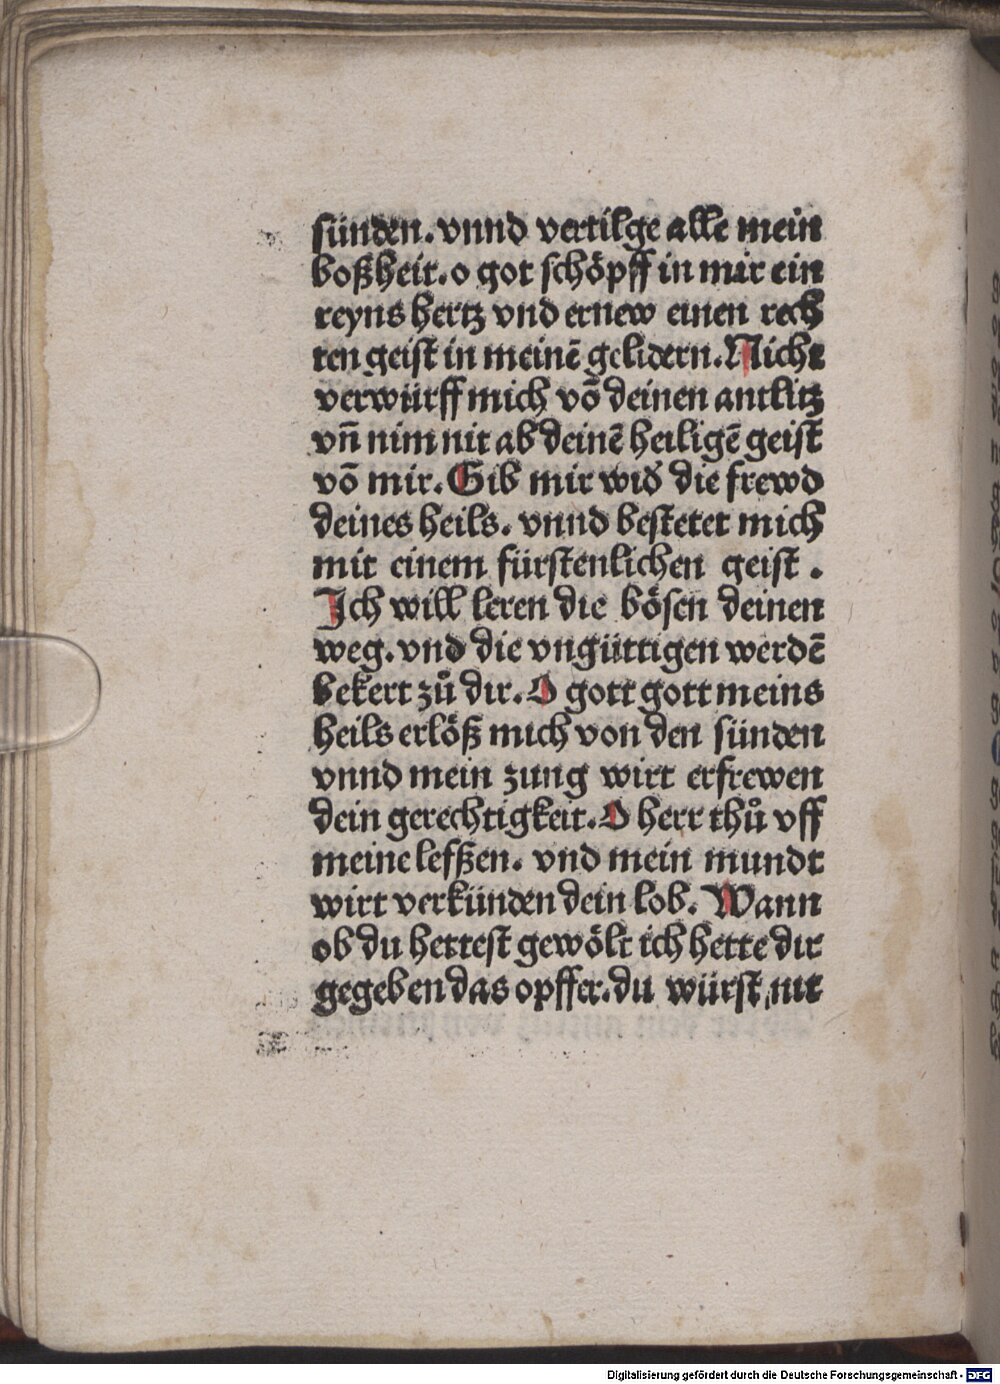 sünden. vnnd vertilge alle mein
boßheit. o got schöpff in mir ein
reyns hertz vnd ernew einen rech
ten geist in meinē gelidern. Nicht
verwürff mich vō deinen antlitz
vñ nim nit ab deinē heiligē geist
vō mir. Gib mir wid̄ die frewd
deines heils. vnnd bestetet mich
mit einem fürstenlichen geist .
Ich will leren die bösen deinen
weg. vnd die vngüttigen werdē
bekert zů dir. O gott gott meins
heils erlöß mich von den sünden
vnnd mein zung wirt erfrewen
dein gerechtigkeit. O herr thů vff
meine lefßen. vnd mein mundt
wirt verkünden dein lob. Wann
ob du hettest gewölt ich hette dir
gegeben das opffer. du würst nit
Digitalisierung gefördert durch die Deutsche Forschungsgemeinschaft - DFG